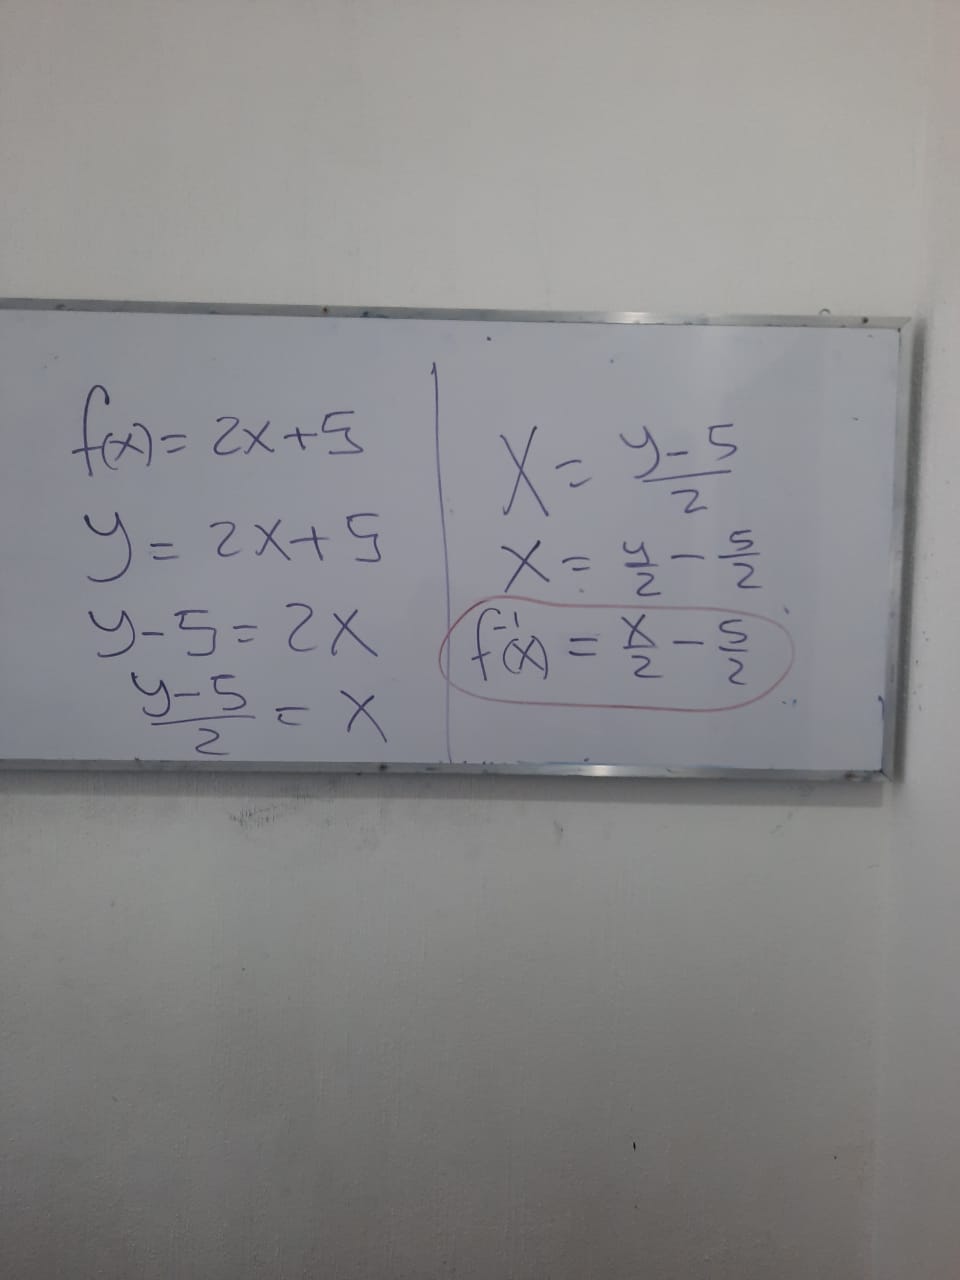 f(x) = 2x+5
y = 2x+5
y-5 = 2x
y-5/2 = x
x = y-5/2
x = y/2 - 5/2
f⁻¹(x) = x/2 - 5/2